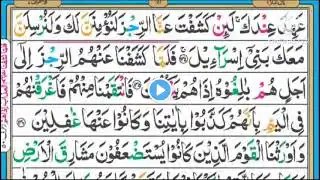 عَهِدَ عِنۡدَكَ‌ۚ لَئِنۡ كَشَفۡتَ عَنَّا الرِّجۡزَ لَنُؤۡمِنَنَّ لَكَ وَلَنُرۡسِلَنَّ
مَعَكَ بَنِىۡۤ اِسۡرَآءِيۡلَ‌ۚ فَلَمَّا كَشَفۡنَا عَنۡهُمُ الرِّجۡزَ اِلٰٓى
اَجَلٍ هُمۡ بٰلِغُوۡهُ اِذَا هُمۡ يَنۡكُثُوۡنَ فَانْتَقَمۡنَا مِنۡهُمۡ فَاَغۡرَقۡنٰهُمۡ
فِى الۡيَمِّ بِاَنَّهُمۡ كَذَّبُوۡا بِاٰيٰتِنَا وَكَانُوۡا عَنۡهَا غٰفِلِيۡنَ
وَاَوۡرَثۡنَا الۡقَوۡمَ الَّذِيۡنَ كَانُوۡا يُسۡتَضۡعَفُوۡنَ مَشَارِقَ الۡاَرۡضِ